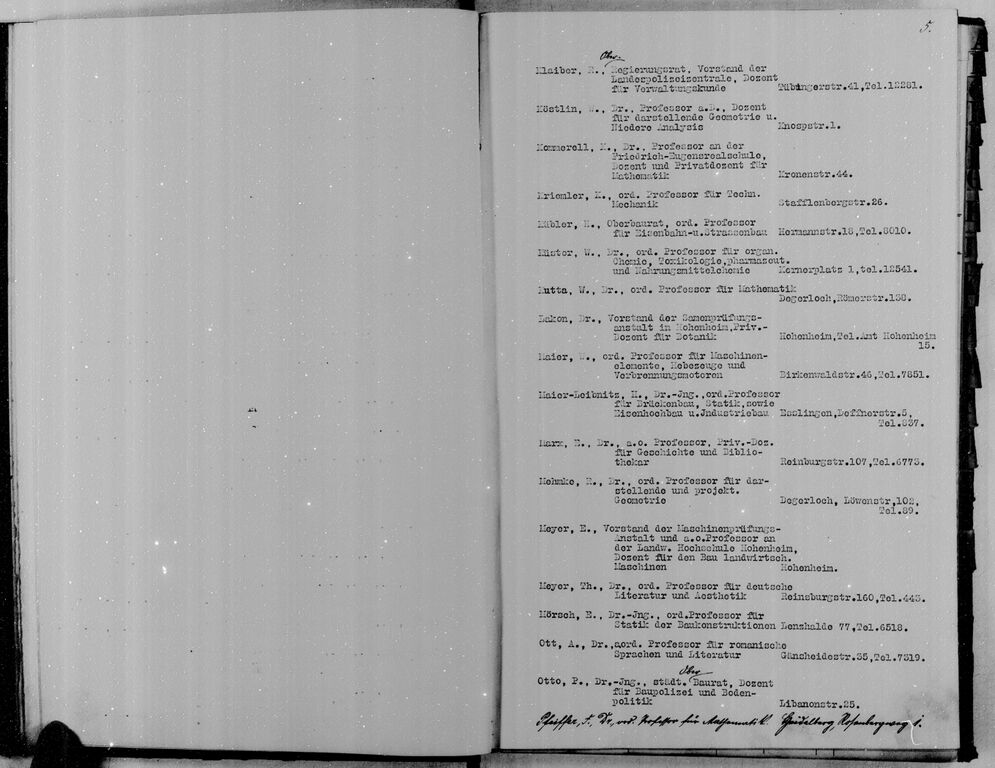 5.
Ober-
Klaiber, R., Regierungsrat, Vorstand der
Landespolizeizentrale, Dozent
für Verwaltungskunde Tübingerstr.41,Tel.12281.
Köstlin, W., Dr., Professor a.D., Dozent
für darstellende Geometrie u.
Niedere Analysis Knospstr.1.
Kommerell, K., Dr., Professor an der
Friedrich-Eugensrealschule,
Dozent und Privatdozent für
Mathematik Kronenstr.44.
Kriemler, K., ord. Professor für Techn.
Mechanik Stafflenbergstr.26.
Kübler, H., Oberbaurat, ord. Professor
für Eisenbahn-u.Strassenbau Hermannstr.18,Tel.8010.
Küster, W., Dr., ord. Professor für organ.
Chemie, Toxikologie,pharmazeut.
und Nahrungsmittelchemie Kernerplatz 1,tel.12541.
Kutta, W., Dr., ord. Professor für Mathematik
Degerloch,Römerstr.138.
Lakon, Dr., Vorstand der Samenprüfungs-
anstalt in Hohenheim,Priv.-
Dozent für Botanik Hohenheim,Tel.Amt Hohenheim
15.
Maier, W., ord. Professor für Maschinen-
elemente, Hebezeuge und
Verbrennungsmotoren Birkenwaldstr.46,Tel.7851.
Maier-Leibnitz, H., Dr.-Jng.,ord.Professor
für Brückenbau, Statik,sowie
Eisenhochbau u.Jndustriebau Esslingen,Deffnerstr.5,
Tel.837.
Marx, E., Dr., a.o. Professor, Priv.-Doz.
für Geschichte und Biblio-
thekar Reinburgstr.107,Tel.6773.
Mehmke, R., Dr., ord. Professor für dar-
stellende und projekt.
Geometrie Degerloch, Löwenstr,102,
Tel.89.
Meyer, E., Vorstand der Maschinenprüfungs-
Anstalt und a.o.Professor an
der Landw. Hochschule Hohenheim,
Dozent für den Bau landwirtsch.
Maschinen Hohenheim.
Meyer, Th., Dr., ord. Professor für deutsche
Literatur und Aesthetik Reinsburgstr.160,Tel.443.
Mörsch, E., Dr.-Jng., ord.Professor für
Statik der Baukonstruktionen Lenzhalde 77,Tel.6518.
Ott, A., Dr.,aord. Professor für romanische
Sprachen und Literatur Gänsheidestr.35,Tel.7319.
Ober
Otto, P., Dr.-Jng., städt. Baurat, Dozent
für Baupolizei und Boden-
politik Libanonstr.25.
Pfeiffer, F., Dr., ord. Professor für Mathematik Heidelberg, Rosenbergweg 1.